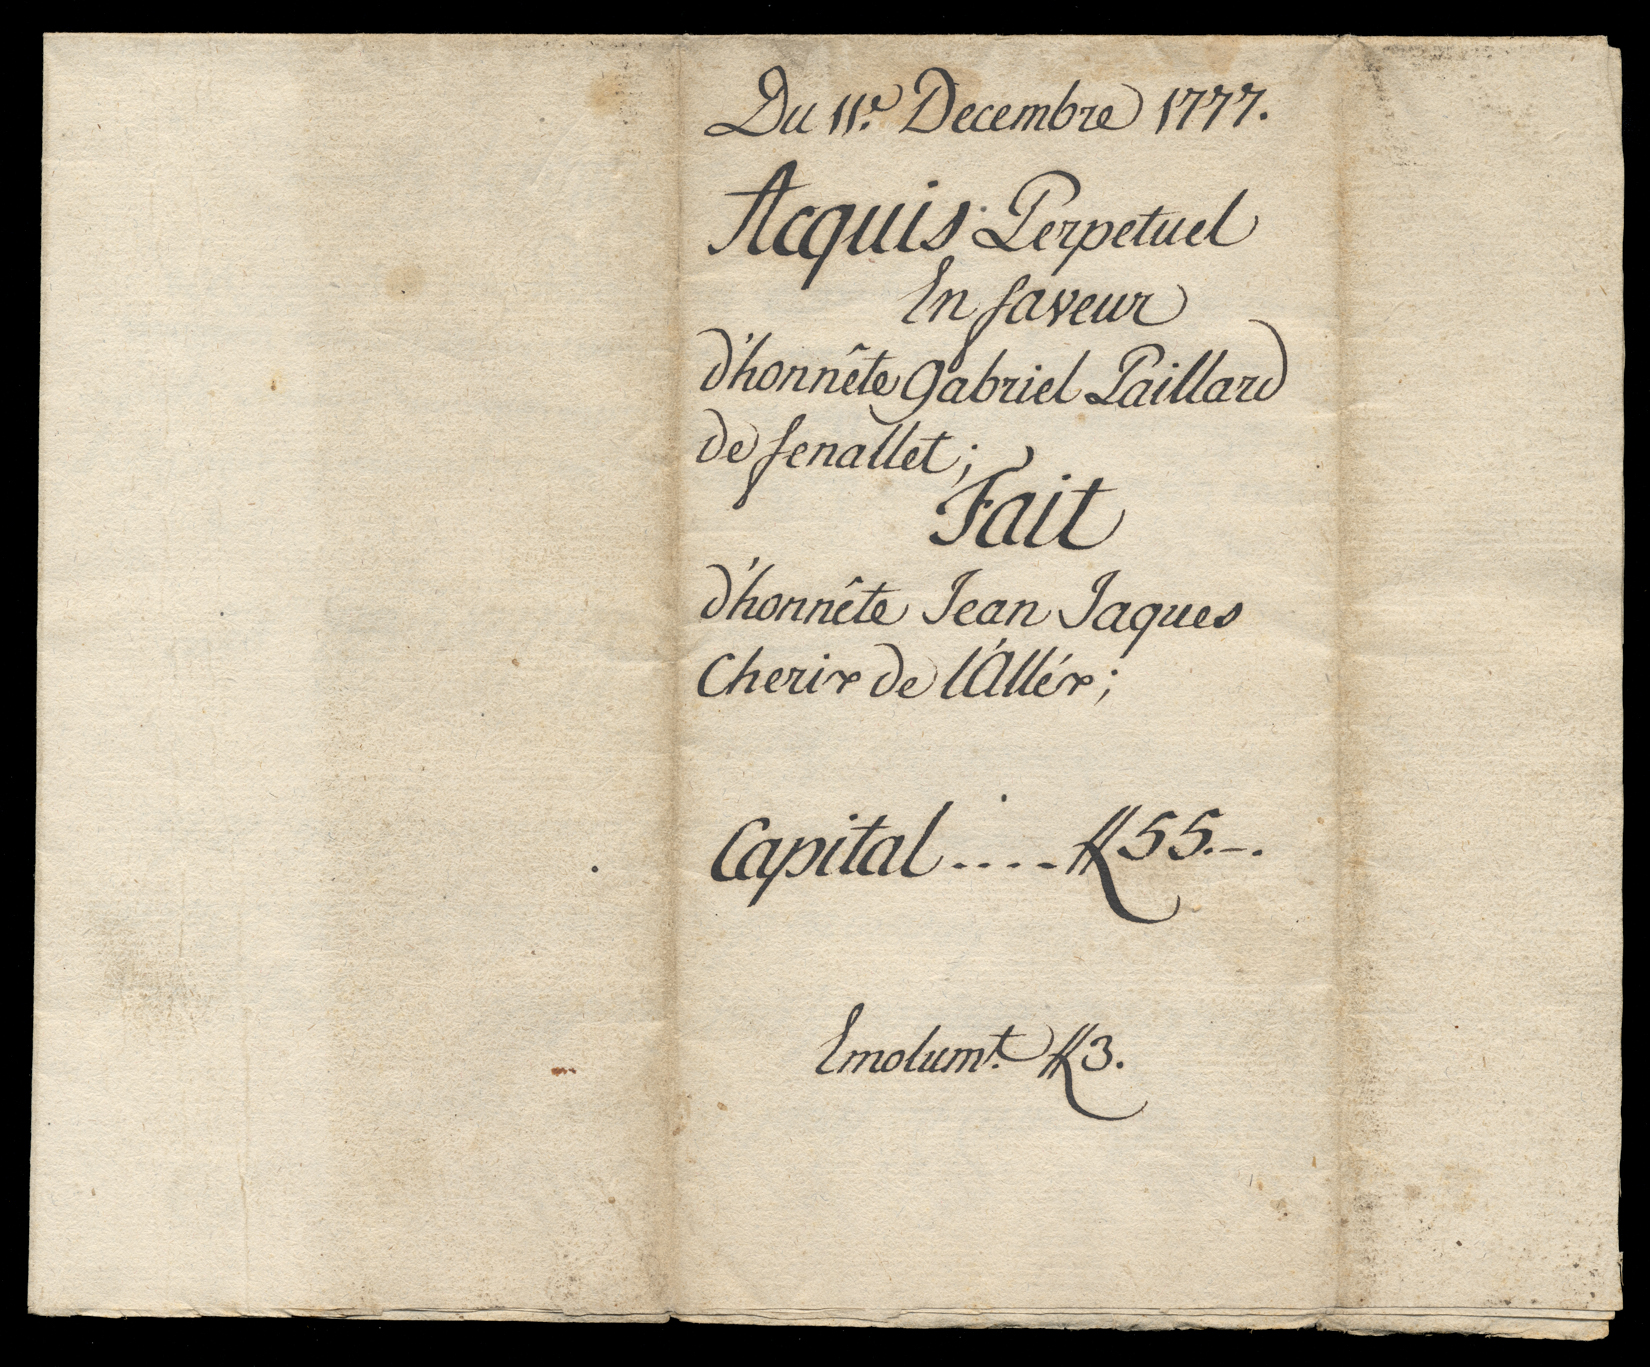 Du 11e. Decembre 1777.
Acquis Perpetuel
En faveur
d'honnête Gabriel Paillard
de fenallet;
Fait
d'honnête Jean Jaques
Cherix de l'Alléx;
Capital .... ₶ 55.-.
Emolumt. ₶ 3.